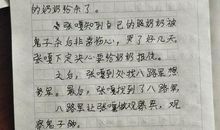 的奶奶给杀了。
张嘎知到自己的奶奶被
鬼子杀后非常伤心，哭了好几天。
张嘎下定决心要给奶奶报仇。
之后，张嘎到处找八路军想
参军。最后，张嘎找到了八路军，
八路军让张嘎做观察兵，观
察鬼子动